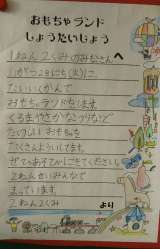 おもちゃランド
しょうたいじょう
1ねん2くみのみなさんへ
1がつ28にち(火)に
たいいくかんで
おもちゃランドをします
くるまやさかなつりなど
たのしいおもちゃを
たくさんよういしてます
ぜひあそびにきてください
2ねんせいみんなで
まっています
2ねん2くみ より